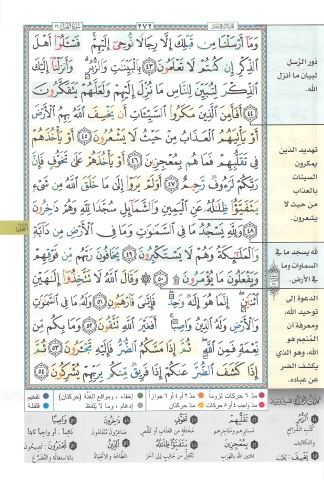 ٢٧٢
وَمَآ أَرْسَلْنَا مِن قَبْلِكَ إِلَّا رِجَالًا نُّوحِىٓ إِلَيْهِمْ ۚ فَسْـَٔلُوٓا۟ أَهْلَ
ٱلذِّكْرِ إِن كُنتُمْ لَا تَعْلَمُونَ ٤٣ بِٱلْبَيِّنَـٰتِ وَٱلزُّبُرِ ۗ وَأَنزَلْنَآ إِلَيْكَ
ٱلذِّكْرَ لِتُبَيِّنَ لِلنَّاسِ مَا نُزِّلَ إِلَيْهِمْ وَلَعَلَّهُمْ يَتَفَكَّرُونَ
٤٤ أَفَأَمِنَ ٱلَّذِينَ مَكَرُوا۟ ٱلسَّيِّـَٔاتِ أَن يَخْسِفَ ٱللَّهُ بِهِمُ ٱلْأَرْضَ
أَوْ يَأْتِيَهُمُ ٱلْعَذَابُ مِنْ حَيْثُ لَا يَشْعُرُونَ ٤٥ أَوْ يَأْخُذَهُمْ
فِى تَقَلُّبِهِمْ فَمَا هُم بِمُعْجِزِينَ ٤٦ أَوْ يَأْخُذَهُمْ عَلَىٰ تَخَوُّفٍ فَإِنَّ
رَبَّكُمْ لَرَءُوفٌ رَّحِيمٌ ٤٧ أَوَلَمْ يَرَوْا۟ إِلَىٰ مَا خَلَقَ ٱللَّهُ مِن شَىْءٍ
يَتَفَيَّؤُا۟ ظِلَـٰلُهُۥ عَنِ ٱلْيَمِينِ وَٱلشَّمَآئِلِ سُجَّدًا لِّلَّهِ وَهُمْ دَٰخِرُونَ
٤٨ وَلِلَّهِ يَسْجُدُ مَا فِى ٱلسَّمَـٰوَٰتِ وَمَا فِى ٱلْأَرْضِ مِن دَآبَّةٍ
وَٱلْمَلَـٰٓئِكَةُ وَهُمْ لَا يَسْتَكْبِرُونَ ٤٩ يَخَافُونَ رَبَّهُم مِّن فَوْقِهِمْ
وَيَفْعَلُونَ مَا يُؤْمَرُونَ ۩ ٥٠ وَقَالَ ٱللَّهُ لَا تَتَّخِذُوٓا۟ إِلَـٰهَيْنِ
ٱثْنَيْنِ ۖ إِنَّمَا هُوَ إِلَـٰهٌ وَٰحِدٌ ۖ فَإِيَّـٰىَ فَٱرْهَبُونِ ٥١ وَلَهُۥ مَا فِى ٱلسَّمَـٰوَٰتِ
وَٱلْأَرْضِ وَلَهُ ٱلدِّينُ وَاصِبًا ۚ أَفَغَيْرَ ٱللَّهِ تَتَّقُونَ ٥٢ وَمَا بِكُم مِّن
نِّعْمَةٍ فَمِنَ ٱللَّهِ ۖ ثُمَّ إِذَا مَسَّكُمُ ٱلضُّرُّ فَإِلَيْهِ تَجْـَٔرُونَ ٥٣ ثُمَّ
إِذَا كَشَفَ ٱلضُّرَّ عَنكُمْ إِذَا فَرِيقٌ مِّنكُم بِرَبِّهِمْ يُشْرِكُونَ ٥٤
دور الرُسل
لبيان ما أنزل
الله.
تهديد الذين
يمكرون
السيئات
بالعذاب
من حيث لا
يشعرون.
لله يسجد ما في
السماوات وما
في الأرض.
الدعوة إلى
توحيد الله،
ومعرفة أن
المُنعِم هو
الله، وهو الذي
يكشف الضر
عن عباده.
مدّ ٦ حركات لزوماً
مدّ ٢ أو ٤ أو ٦ جوازاً
إخفاء، ومواقع الغُنَّة (حركتان)
تفخيم
مدّ واجب ٤ أو ٥ حركات
مدّ حركتان
إدغام، وما لا يُلفَظ
قلقلة